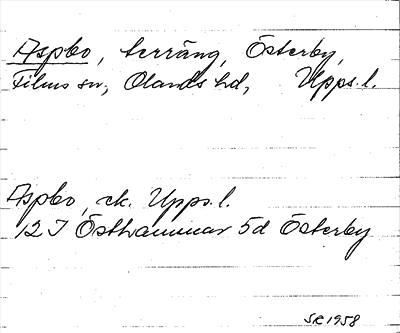 Aspbo, terräng, Österby,
Films sn, Olands hd, Upps.l.
Aspbo, ek. Upps.l.
12 I Östhammar 5d Österby
SR 1958